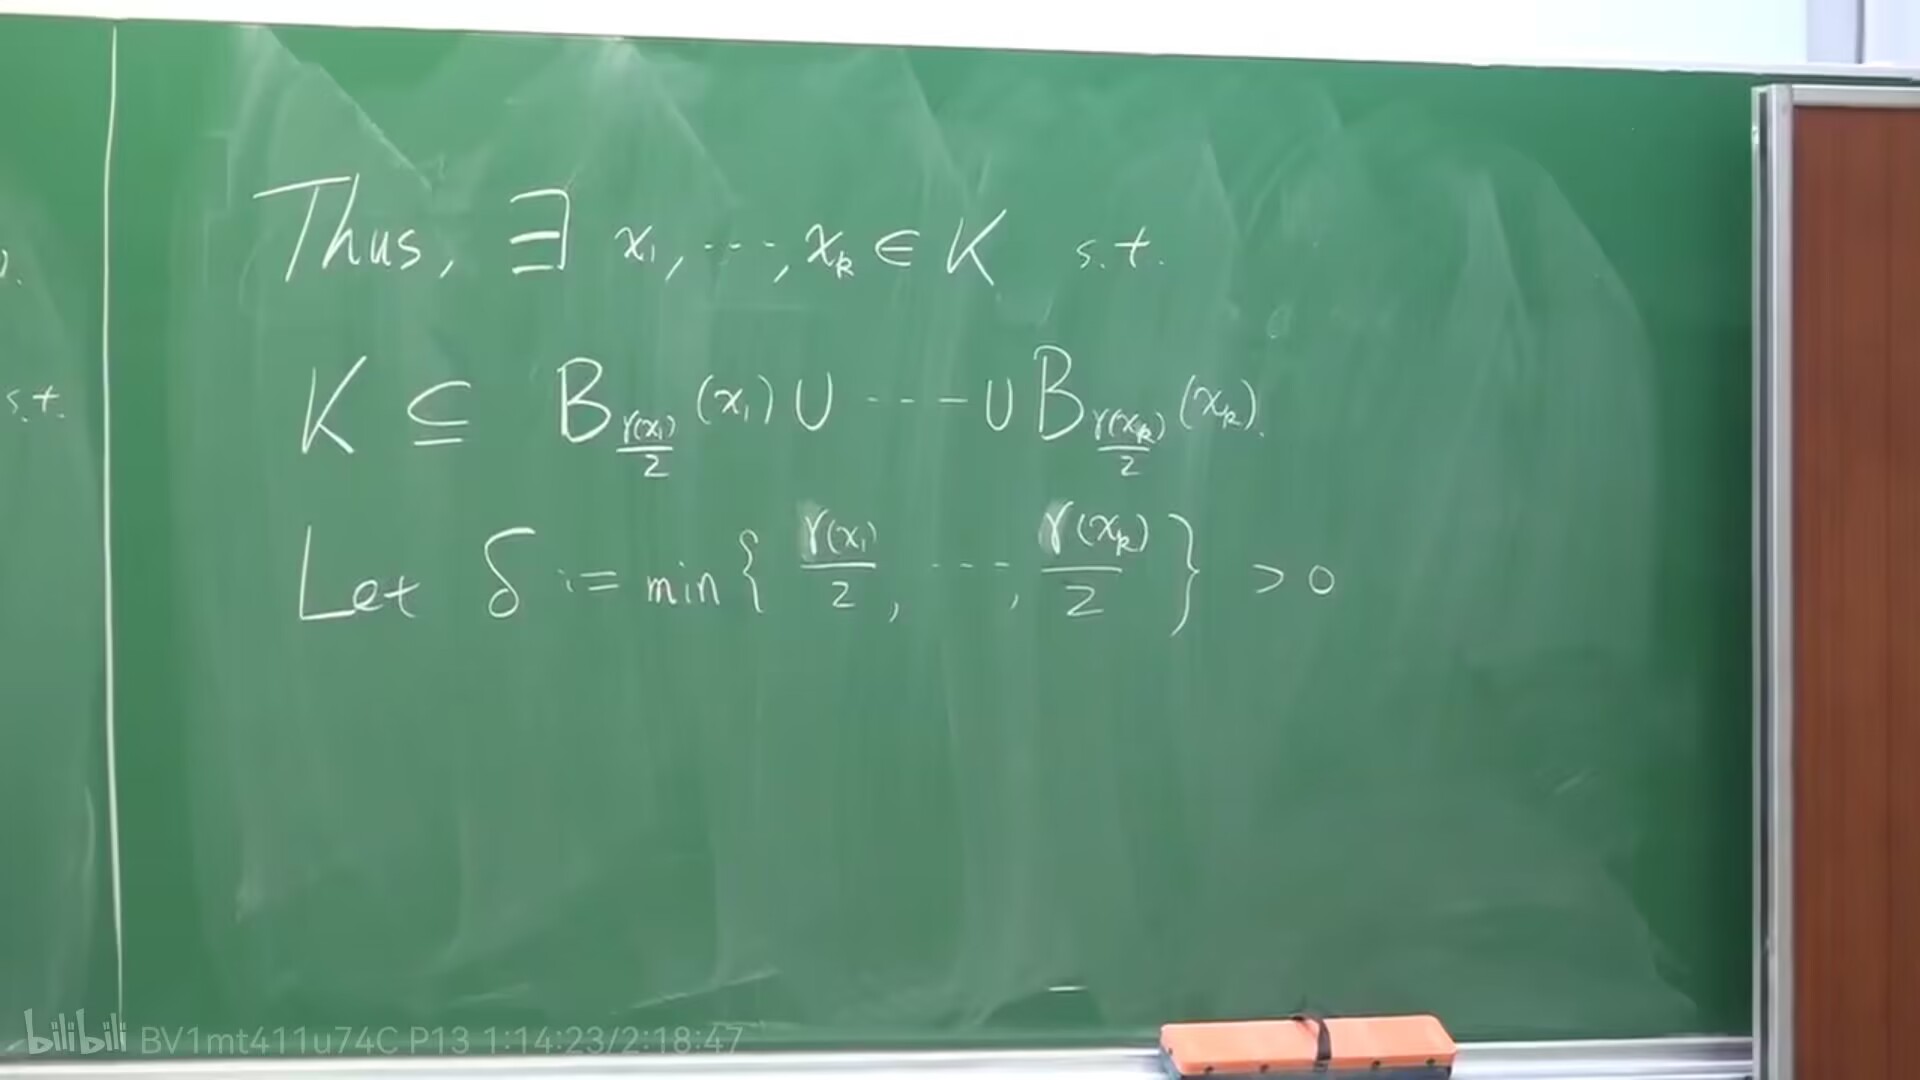 ).
s.t.
Thus, ∃ x₁, ⋯, xₖ ∈ K s.t.
K ⊆ B_{r(x₁)/2}(x₁) ∪ ⋯ ∪ B_{r(xₖ)/2}(xₖ).
Let δ := min{ r(x₁)/2, ⋯, r(xₖ)/2 } > 0
bilibili BV1mt411u74C P13 1:14:23/2:18:47